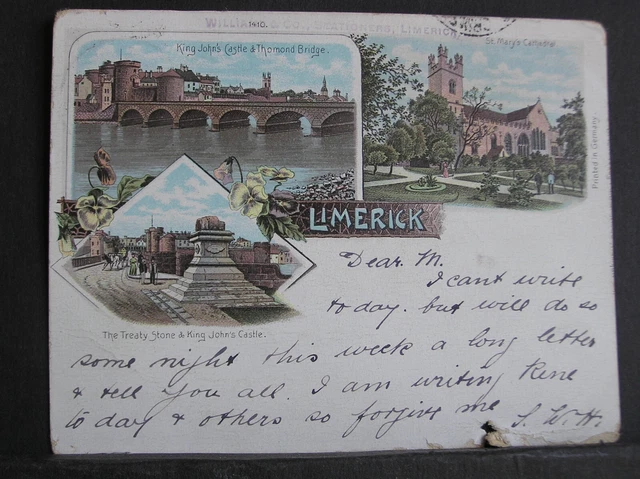 1910.
WILLIAM & CO., STATIONERS, LIMERICK
King John's Castle & Thomond Bridge.
St. Mary's Cathedral
Printed in Germany
LIMERICK
The Treaty Stone & King John's Castle.
Dear. M.
I cant write
to day. but will do so
some night this week a long letter
& tell you all. I am writing Rene
to day & others so forgive me S. W. H.